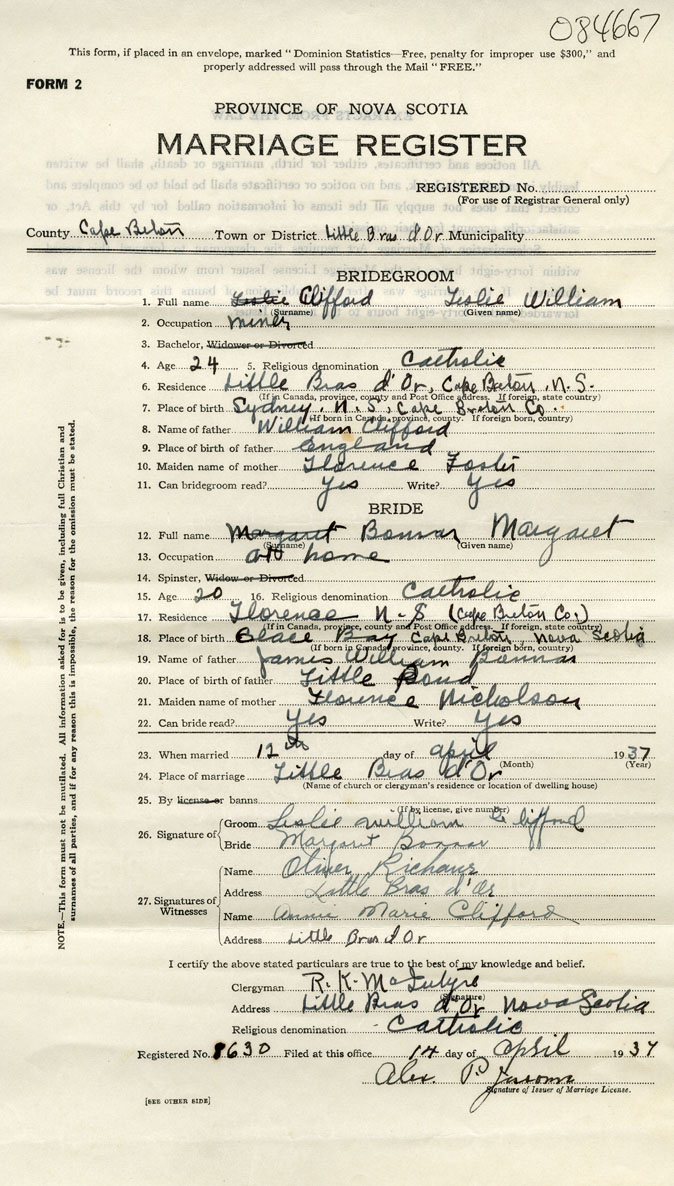 084667
This form, if placed in an envelope, marked "Dominion Statistics—Free, penalty for improper use $300," and
properly addressed will pass through the Mail "FREE."
FORM 2
PROVINCE OF NOVA SCOTIA
MARRIAGE REGISTER
REGISTERED No.
(For use of Registrar General only)
County Cape Breton Town or District Little Bras d'Or Municipality
BRIDEGROOM
1. Full name Leslie Clifford Leslie William
(Surname) (Given name)
2. Occupation miner
3. Bachelor, Widower or Divorced
4. Age 24 5. Religious denomination Catholic
6. Residence Little Bras d'Or, Cape Breton, N.S.
(If in Canada, province, county and Post Office address. If foreign, state country)
7. Place of birth Sydney, N.S., Cape Breton Co.
(If born in Canada, province, county. If foreign born, country)
8. Name of father William Clifford
9. Place of birth of father England
10. Maiden name of mother Florence Foster
11. Can bridegroom read? Yes Write? Yes
BRIDE
12. Full name Margaret Bonnar Margaret
(Surname) (Given name)
13. Occupation at home
14. Spinster, Widow or Divorced
15. Age 20 16. Religious denomination Catholic
17. Residence Florence N-S (Cape Breton Co.)
(If in Canada, province, county and Post Office address. If foreign, state country)
18. Place of birth Glace Bay Cape Breton, Nova Scotia
(If born in Canada, province, county. If foreign born, country)
19. Name of father James William Bonnar
20. Place of birth of father Little Pond
21. Maiden name of mother Florence Nicholson
22. Can bride read? Yes Write? Yes
23. When married 12th day of april 1937
(Month) (Year)
24. Place of marriage Little Bras d'Or
(Name of church or clergyman's residence or location of dwelling house)
25. By license or banns
(If by license, give number)
26. Signature of Groom Leslie William Clifford
Bride Margaret Bonnar
27. Signatures of Witnesses Name Oliver
Address Little Bras d'Or
Name Annie Marie Clifford
Address Little Bras d'Or
I certify the above stated particulars are true to the best of my knowledge and belief.
Clergyman R. K. McIntyre
(Signature)
Address Little Bras d'Or Nova Scotia
Religious denomination Catholic
Registered No. 8630 Filed at this office 14 day of april 1937
Alex P.
Signature of Issuer of Marriage License.
[SEE OTHER SIDE]
NOTE.—This form must not be mutilated. All information asked for is to be given, including full Christian and
surnames of all parties, and if for any reason this is impossible, the reason for the omission must be stated.